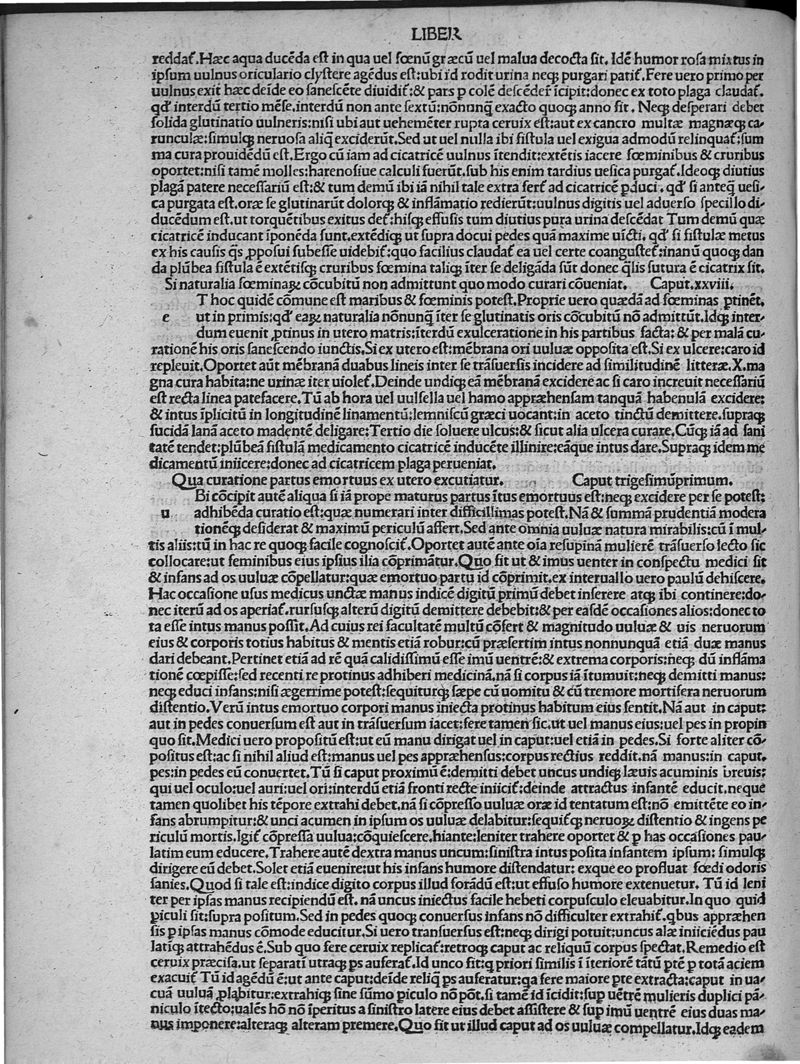 LIBER
reddat᷑. Hæc aqua ducēda est in qua uel fœnū græcū uel malua decocta sit. Idē humor rosa mixtus in
ipsum uulnus oriculario clystere agēdus est: ubi id rodit urina neqꝫ purgari patit᷑. Fere uero primo per
uulnus exit hæc deīde eo sanescēte diuidit᷑: & pars ꝑ colē descēdeř īcipit: donec ex toto plaga claudat᷑.
qđ interdū tertio mēse, interdū non ante sextū: nōnunq̄ exacto quoqꝫ anno fit. Neqꝫ desperari debet
solida glutinatio uulneris: nisi ubi aut uehemēter rupta ceruix est: aut ex cancro multæ magnæqꝫ ca-
runculæ: simulqꝫ neruosa aliq̄ exciderūt. Sed ut uel nulla ibi fistula uel exigua admodū relinquat᷑: sum
ma cura prouidēdū est. Ergo cū iam ad cicatricē uulnus ītendit: extētis iacere fœminibus & cruribus
oportet: nisi tamē molles: harenosiue calculi fuerūt. sub his enim tardius uesica purgat᷑. Ideoqꝫ diutius
plagā patere necessariū est: & tum demū ibi iā nihil tale extra fert᷑ ad cicatricē ꝑduci. qđ si anteq̄ uesi-
ca purgata est. oræ se glutinarūt dolorqꝫ & inflāmatio redierūt: uulnus digitis uel aduerso specillo di-
ducēdum est. ut torquētibus exitus det᷑: hisqꝫ effusis tum diutius pura urina descēdat Tum demū quæ
cicatricē inducant īponēda sunt. extēdiqꝫ ut supra docui pedes quā maxime uīcti. qđ si fistulæ metus
ex his causis q̄s ꝓposui subesse uidebit᷑: quo facilius claudat᷑ ea uel certe coangustet᷑: in anū quoqꝫ dan
da plūbea fistula ē extētisqꝫ cruribus fœmina taliqꝫ īter se deligāda sūt donec q̄lis futura ē cicatrix sit.
Si naturalia fœminaꝝ cōcubitū non admittunt quo modo curari cōueniat. Caput. xxviii.
T hoc quidē cōmune est maribus & fœminis potest. Proprie uero quædā ad fœminas ꝑtinēt.
e ut in primis: qđ eaꝝ naturalia nōnunq̄ īter se glutinatis oris cōcubitū nō admittūt. Idqꝫ inter-
dum euenit ꝓtinus in utero matris: īterdū exulceratione in his partibus facta: & per malā cu-
rationē his oris sanescendo iunctis. Si ex utero est: mēbrana ori uuluæ opposita est. Si ex ulcere: caro id
repleuit. Oportet aūt mēbranā duabus lineis inter se trāsuersis incidere ad similitudinē litteræ. X. ma
gna cura habita: ne urinæ iter uiolet᷑. Deinde undiqꝫ eā mēbranā excidere ac si caro increuit necessariū
est recta linea patefacere. Tū ab hora uel uulsella uel hamo appræhensam tanquā habenulā excidere:
& intus īplicitū in longitudinē linamentū: lemniscū græci uocant: in aceto tinctū demittere. supraqꝫ
sucidā lanā aceto madentē deligare: Tertio die soluere ulcus: & sicut alia ulcera curare. Cūqꝫ iā ad sani
tatē tendet: plūbeā fistulā medicamento cicatricē inducēte illinire: eāque intus dare. Supraqꝫ idem me
dicamentū iniicere: donec ad cicatricem plaga perueniat.
Qua curatione partus emortuus ex utero excutiatur. Caput trigesimūprimum.
Bi cōcipit autē aliqua si iā prope maturus partus ītus emortuus est: neqꝫ excidere per se potest:
u adhibēda curatio est: quæ numerari inter difficillimas potest. Nā & summā prudentiā modera
tionēqꝫ desiderat & maximū periculū affert. Sed ante omnia uuluæ natura mirabilis: cū ī mul-
tis aliis: tū in hac re quoqꝫ facile cognoscit᷑. Oportet autē ante oīa resupinā mulierē trāsuerso lecto sic
collocare: ut feminibus eius ipsius ilia cōprimātur. Quo fit ut & imus uenter in conspectu medici sit
& infans ad os uuluæ cōpellatur: quæ emortuo partu id cōprimit. ex interuallo uero paulū dehiscere.
Hac occasione usus medicus unctæ manus indicē digitū primū debet inserere atqꝫ ibi continere: do-
nec iterū ad os aperiat᷑. rursusqꝫ alterū digitū demittere debebit: & per easdē occasiones alios: donec to
ta esse intus manus possit. Ad cuius rei facultatē multū cōfert & magnitudo uuluæ & uis neruorum
eius & corporis totius habitus & mentis etiā robur: cū præsertim intus nonnunquā etiā duæ manus
dari debeant. Pertinet etiā ad rē quā calidissimū esse imū uentrē: & extrema corporis: neqꝫ dū inflāma
tionē cœpisse: sed recenti re protinus adhiberi medicinā. nā si corpus iā ītumuit: neqꝫ demitti manus:
neqꝫ educi infans: nisi ægerrime potest: sequiturqꝫ sæpe cū uomitu & cū tremore mortifera neruorum
distentio. Verū intus emortuo corpori manus iniecta protinus habitum eius sentit. Nā aut in caput:
aut in pedes conuersum est aut in trāsuersum iacet: fere tamen sic, ut uel manus eius: uel pes in propin
quo sit. Medici uero propositū est: ut eū manu dirigat uel in caput: uel etiā in pedes. Si forte aliter cō-
positus est: ac si nihil aliud est: manus uel pes appræhensus: corpus rectius reddit. nā manus: in caput.
pes: in pedes eū conuertet. Tū si caput proximū ē: demitti debet uncus undiqꝫ læuis acuminis breuis:
qui uel oculo: uel auri: uel ori: interdū etiā fronti recte iniicit᷑: deinde attractus infantē educit. neque
tamen quolibet his tēpore extrahi debet. nā si cōpresso uuluæ oræ id tentatum est: nō emittēte eo in-
fans abrumpitur: & unci acumen in ipsum os uuluæ delabitur: sequit᷑qꝫ neruoꝝ distentio & ingens pe
riculū mortis. Igit᷑ cōpressa uulua: cōquiescere. hiante: leniter trahere oportet & ꝑ has occasiones pau-
latim eum educere. Trahere autē dextra manus uncum: sinistra intus posita infantem ipsum: simulqꝫ
dirigere eū debet. Solet etiā euenire: ut his infans humore distendatur: exque eo profluat fœdi odoris
sanies. Quod si tale est: indice digito corpus illud forādū est: ut effuso humore extenuetur. Tū id leni
ter per ipsas manus recipiendū est. nā uncus iniectus facile hebeti corpusculo eleuabitur. In quo quid
piculi sit: supra positum. Sed in pedes quoqꝫ conuersus infans nō difficulter extrahit᷑. qbus appræhen
sis ꝑ ipsas manus cōmode educitur. Si uero transuersus est: neqꝫ dirigi potuit: uncus alæ iniiciēdus pau
latiqꝫ attrahēdus ē. Sub quo fere ceruix replicat᷑: retroqꝫ caput ac reliquū corpus spectat. Remedio est
ceruix præcisa. ut separatī utraqꝫ ps auferat᷑. Id unco fit: q priori similis ī īteriorē tātū ptē ꝑ totā aciem
exacuit᷑ Tū id agēdū ē: ut ante caput: deīde reliq̄ ps auferatur: qa fere maiore pte extracta: caput in ua-
cuā uuluā ꝓlabitur: extrahiqꝫ sine sūmo piculo nō pōt. si tamē id īcidit: sup uētrē mulieris duplici pā-
niculo īiecto: ualēs hō nō īperitus a sinistro latere eius debet assistere & sup imū uentrē eius duas ma-
nus imponere: alteraqꝫ alteram premere. Quo fit ut illud caput ad os uuluæ compellatur. Idqꝫ eadem